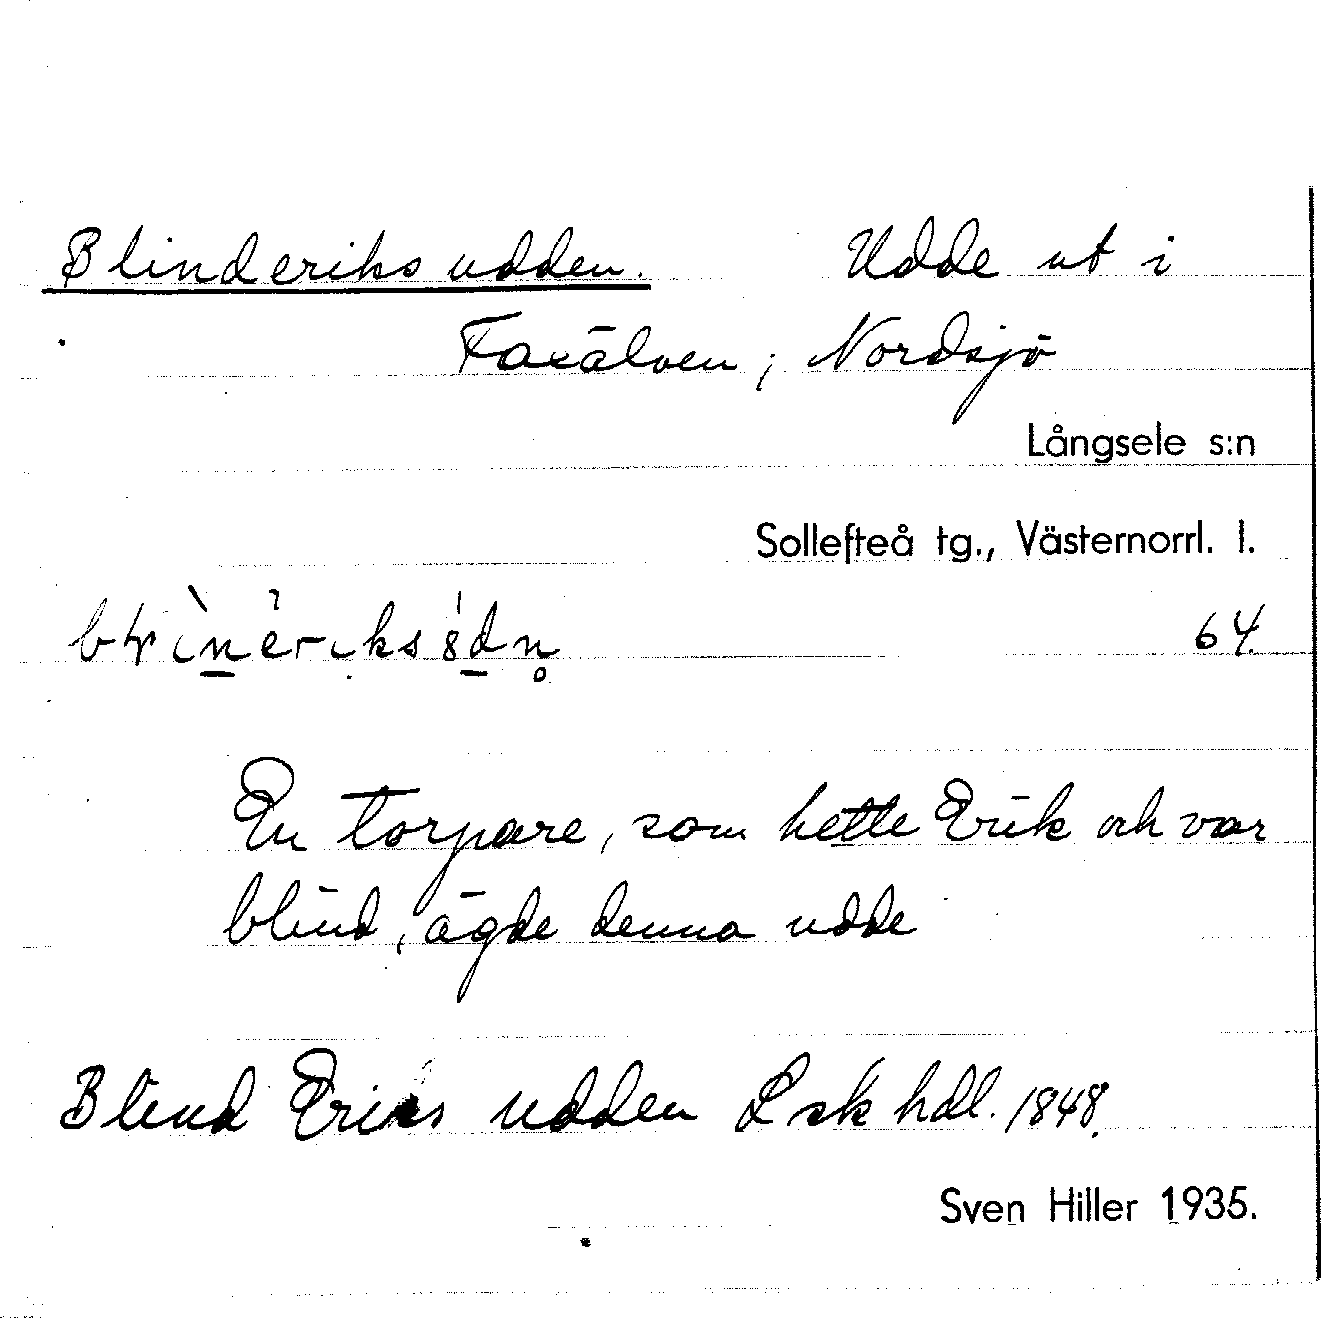 Blinderiks udden. Udde ut i
Faxälven, Nordsjö
Långsele s:n
Sollefteå tg., Västernorrl. l.
64.
En torpare, som hette Erik och var
blind, ägde denna udde
Blind Eriks udden L sk hdl. 1848.
Sven Hiller 1935.